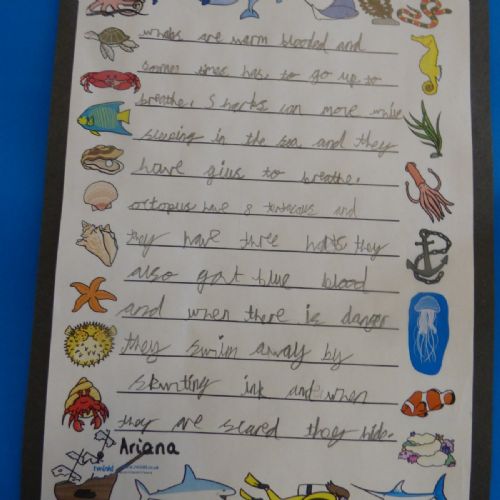 whales are warm blooded and
somen times has to go up to
breathe. Sharks can move while
sleeping in the sea and they
have gius to breathe.
octopus have 8 tentacous and
they have three hatts they
also got blue blood
and when there is danger
they swim away by
skwrting ink and when
they are scared they hide.
Ariana
twinkl